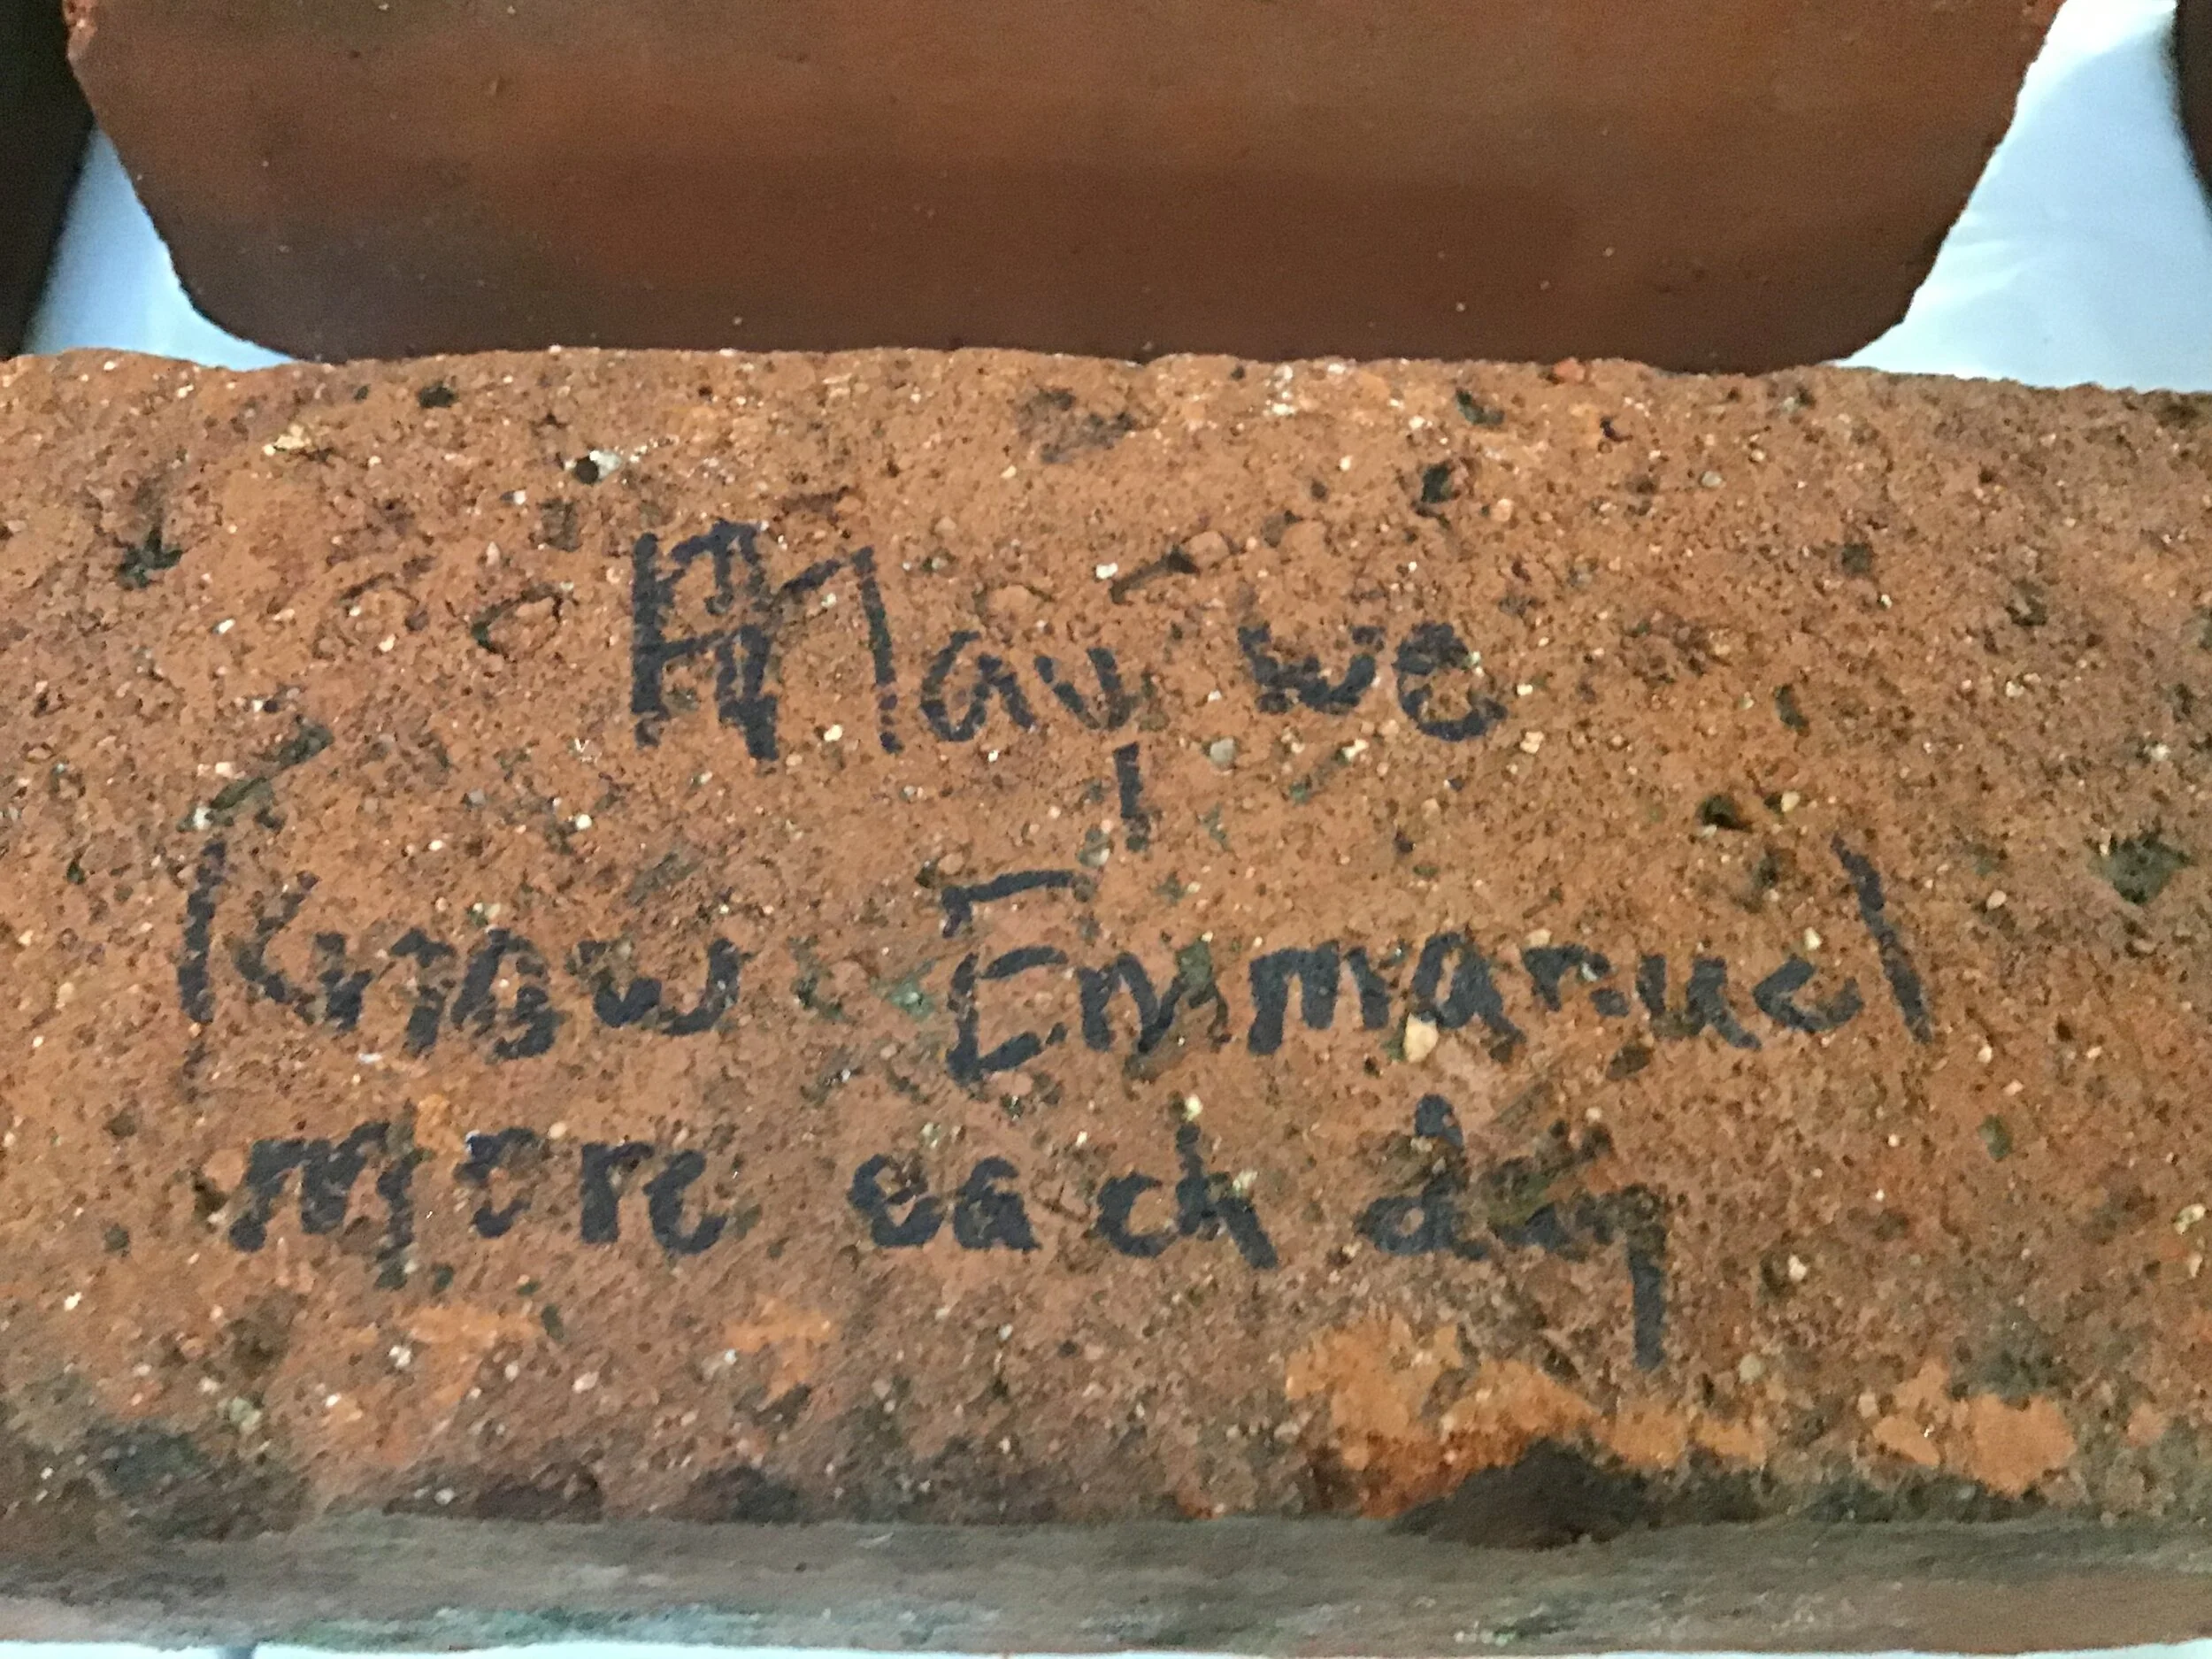 May we
Know Emmanuel
more each day